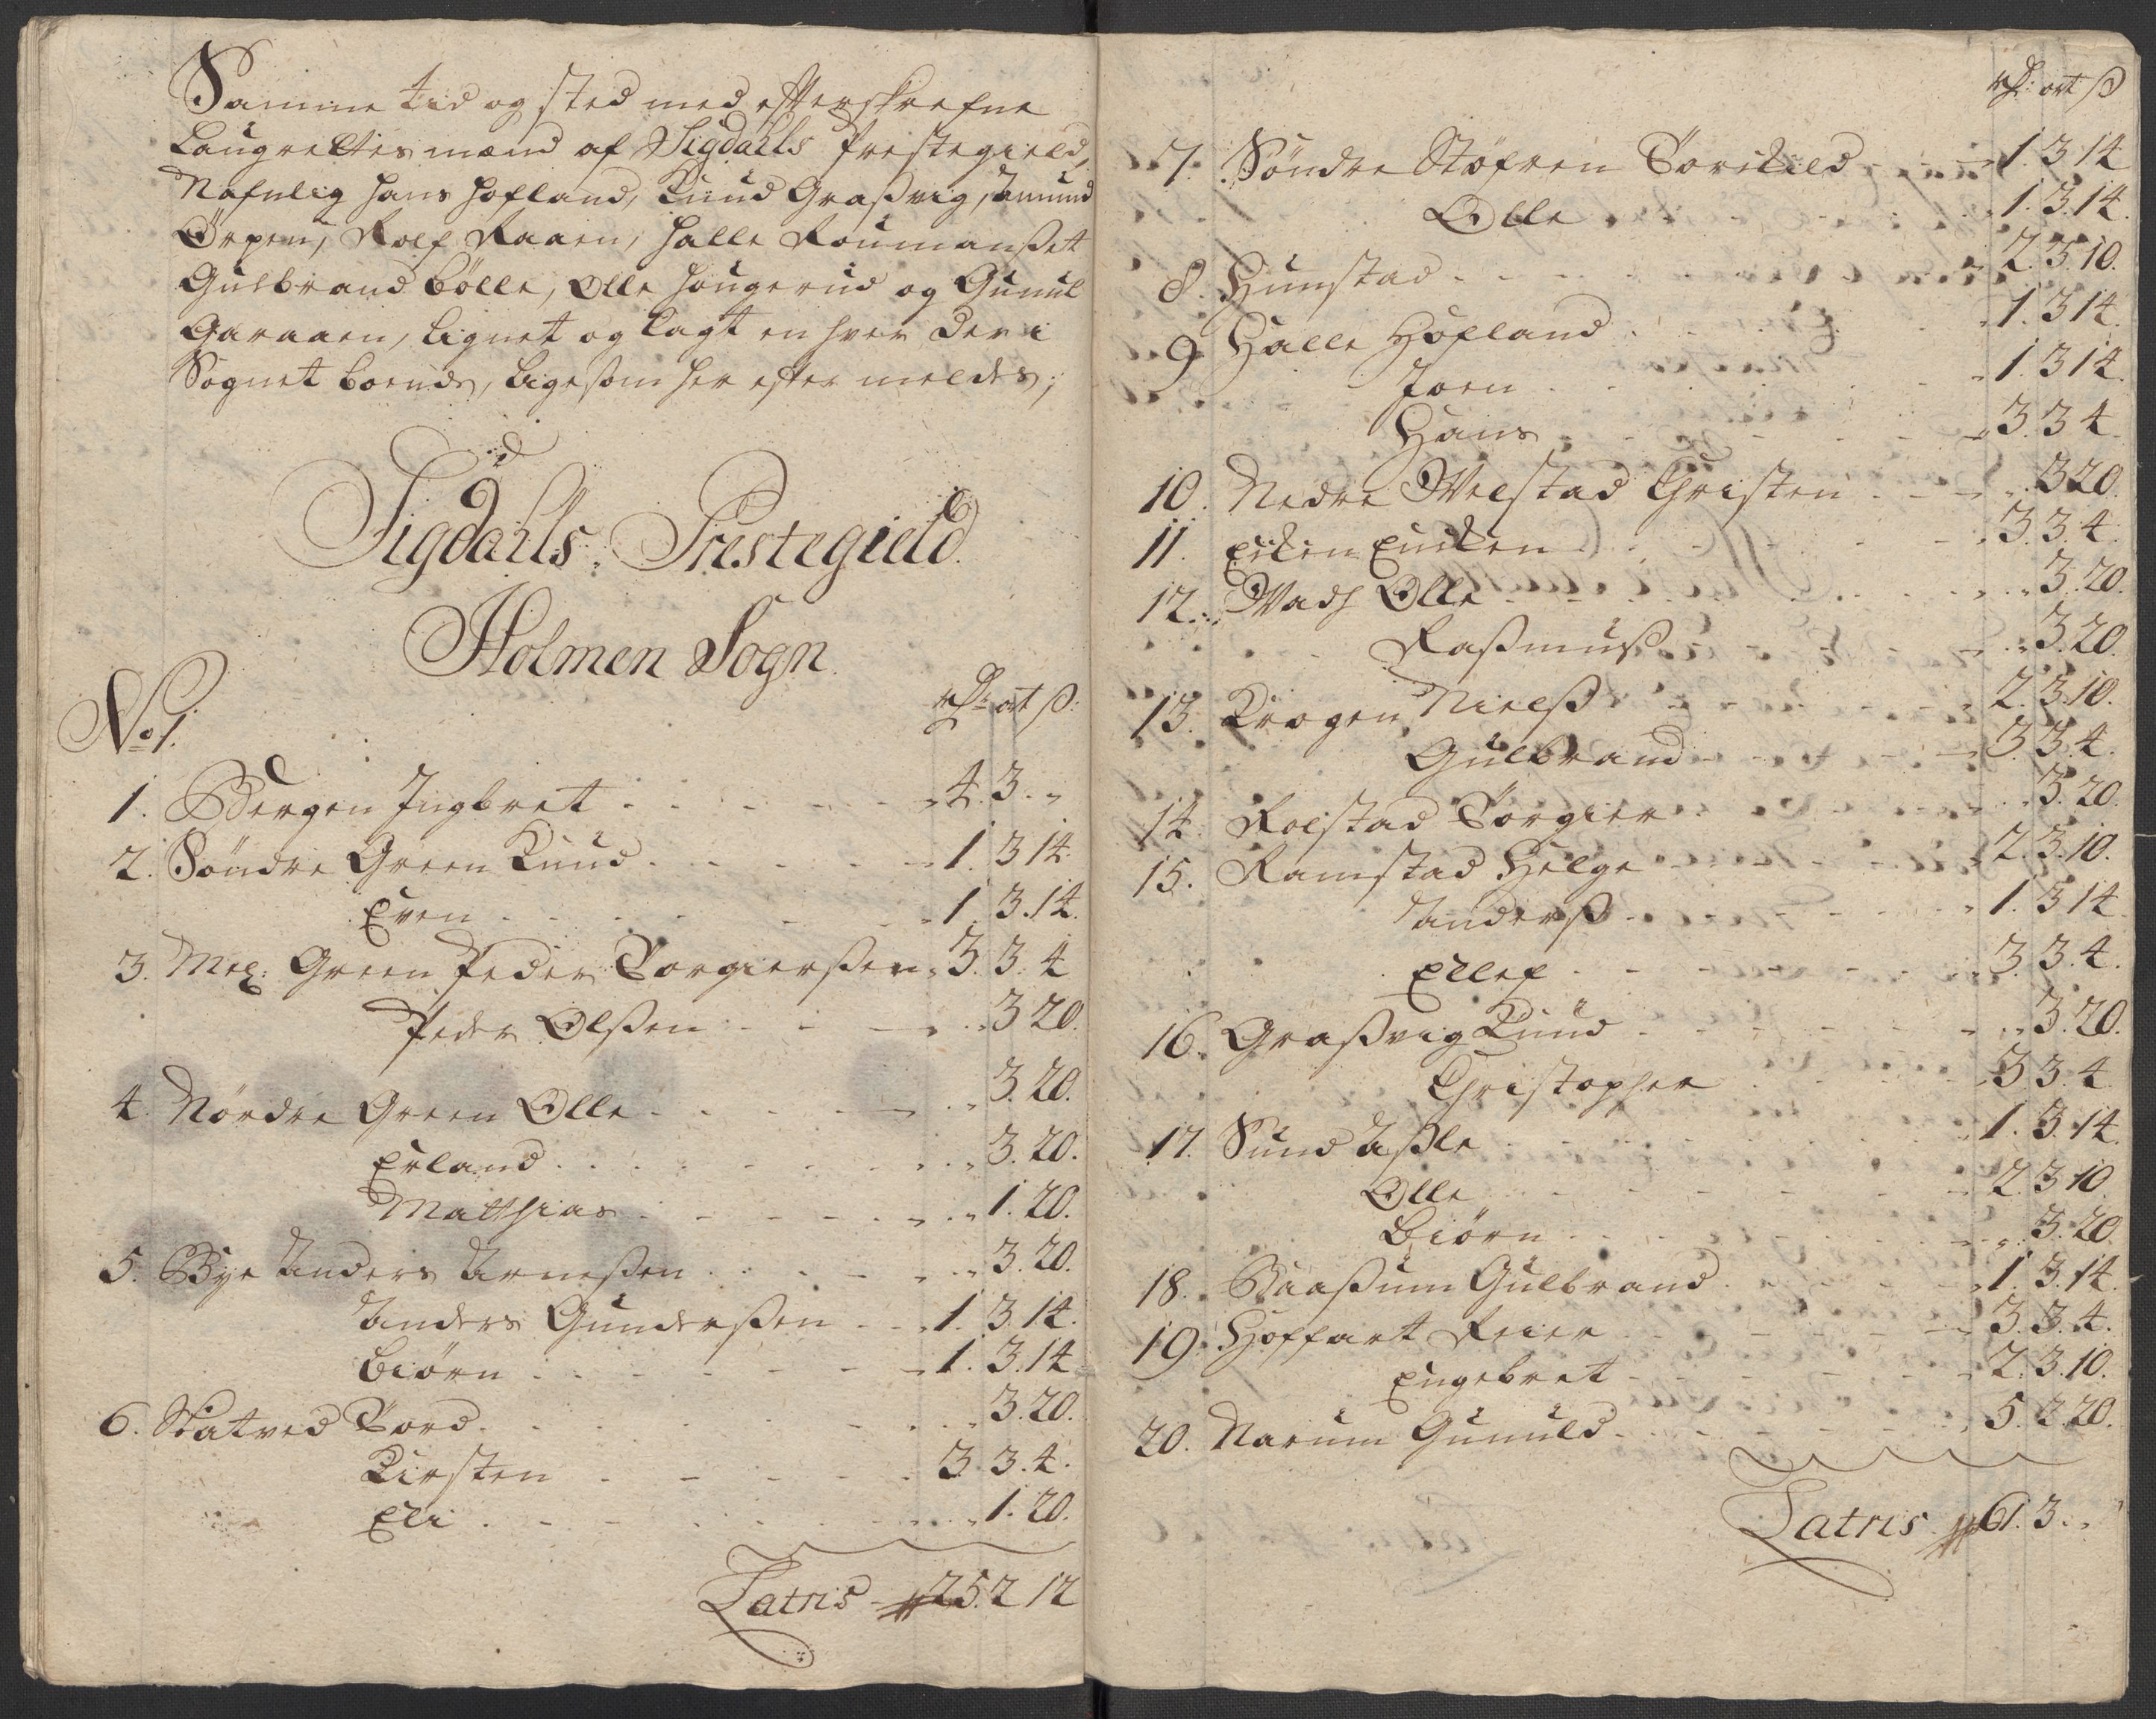 Samme tid og sted med efterskrefne
Laugrettes mænd af Sigdahls Prestegield,
Nafnlig Hans Hofland, Knud Graßvig, Amund
Ørpen, Rolf Raaen, Halle Roumanset
Gulbrand Bølle, Olle Hougerud og Gunul
Garaaen, lignet og lagt en hver der i
Sognet boende, ligesom her efter meldes;
Sigdahls Prestegield.
Holmen Sogn.
No 1.
rdr ort ß:
1. Bergen Ingbret 4. 3. „
2. Søndre Green Knud 1. 3 14.
Even 1. 3. 14.
3. Mel: Green Peder Torgierßen 3. 3. 4
Peder Olßen „ 3 20.
4. Nordre Green Olle „ 3. 20.
Erland „ 3. 20.
Matthias „ 1. 20.
5. Bye Anders Arneßen „ 3. 20.
Anders Gunderßen 1. 3. 14.
Biørn 1. 3. 14
6. Skatved Tord „ 3. 20.
Kirsten 3 3. 4.
Eli „ 1. 20.
Latris 25. 2 12
rdr: ort ß
7. Søndre Støfren Torkild 1. 3 14
Olle 1. 3. 14.
8. Hunstad 2. 3. 10.
9 Halle Hofland 1. 3 14.
Joen 1. 3 14.
Hans 3. 3 4
10. Nedre Welstad Christen „ 3 20.
11. Eeken Eeiken 3. 3. 4.
12. Wads Olle „ 3. 20.
Raßmus „ 3. 20.
13. Krogen Nielß 2. 3. 10.
Gulbrand 3. 3. 4.
14 Rolstad Torgier „ 3. 20.
15. Ramstad Helge 2. 3. 10.
Anderß 1. 3 14
Ellef 3. 3. 4.
16. Graßvig Knud „ 3. 20.
Christopher 3 3. 4.
17. Sund Aßle 1. 3. 14.
Olle 2. 3 10
Biørn „ 3. 20.
18. Baaßum Gulbrand 1. 3. 14.
19. Hoffart Reier 3. 3. 4.
Engebret 2. 3. 10.
20. Narum Gunuld 5. 2 20.
Latris 61. 3. „